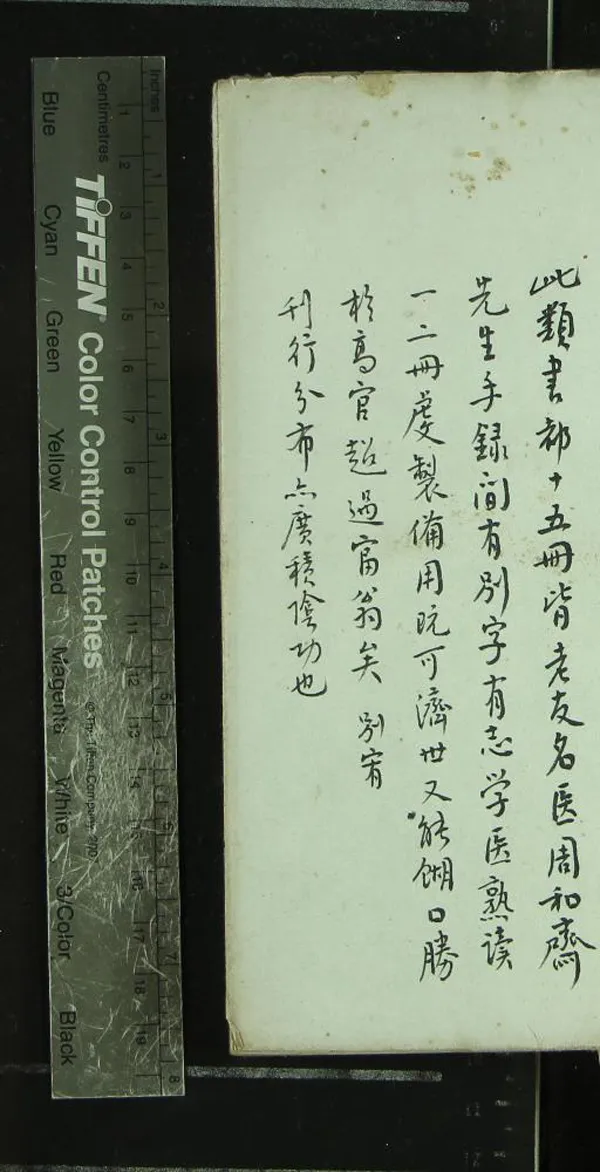 此類書部十五冊皆老友名医周和齋
先生手録间有別字有志学医熟读
一二冊虔製備用既可濟世又能餬口勝
於高官超過富翁矣 別有
刊行分布亦廣積陰功也
Inches
Centimetres
1 2 3 4 5 6 7 8
1 2 3 4 5 6 7 8 9 10 11 12 13 14 15 16 17 18 19
TIFFEN Color Control Patches
© The Tiffen Company
Blue Cyan Green Yellow Red Magenta White 3/Color Black